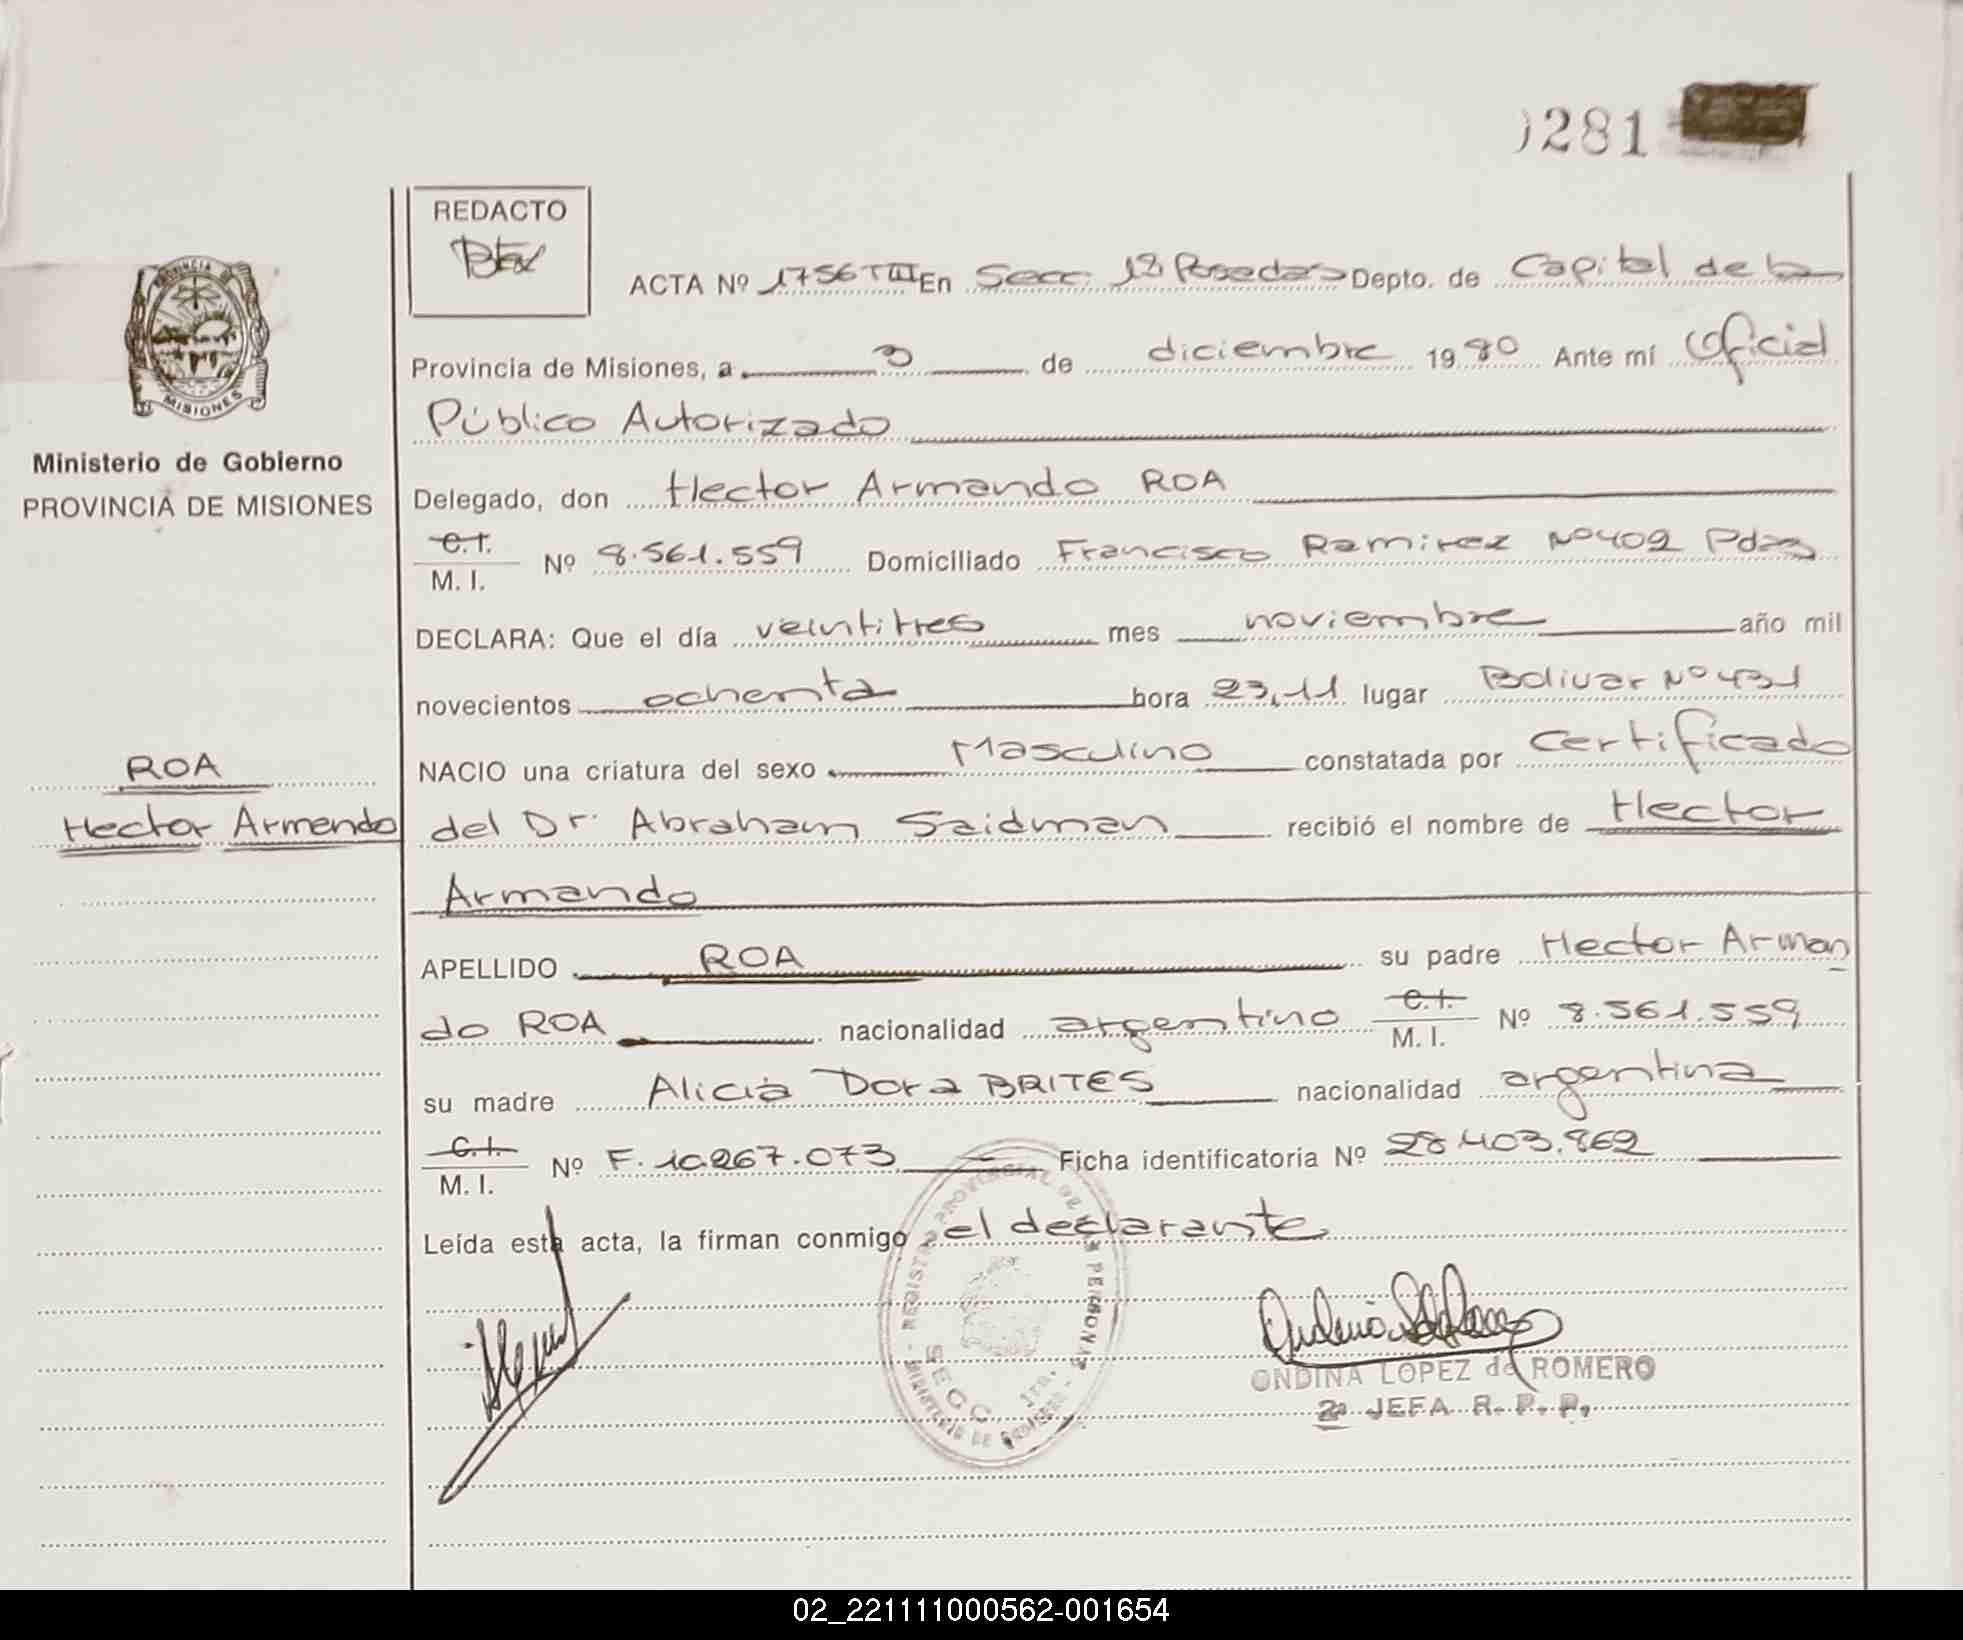 0281
REDACTO
ACTA Nº 1756 T III En Secc. 1ª Posadas Depto. de Capital de la
Provincia de Misiones, a 3 de diciembre 1980 Ante mí Oficial
Público Autorizado
PROVINCIA DE MISIONES
Ministerio de Gobierno
PROVINCIA DE MISIONES
Delegado, don Hector Armando ROA
C.I. M. I. Nº 8.561.559 Domiciliado Francisco Ramirez Nº 402 Pdas
DECLARA: Que el día veintitres mes noviembre año mil
novecientos ochenta hora 23,11 lugar Bolivar Nº 431
NACIO una criatura del sexo Masculino constatada por Certificado
ROA
Hector Armando
del Dr. Abraham Saidman recibió el nombre de Hector
Armando
APELLIDO ROA su padre Hector Arman
do ROA nacionalidad argentino C.I. M. I. Nº 8.561.559
su madre Alicia Dora BRITES nacionalidad argentina
C.I. M. I. Nº F. 10.267.073 Ficha identificatoria Nº 28.403.862
Leída esta acta, la firman conmigo el declarante
REGISTRO PROVINCIAL DE LAS PERSONAS
SECC. 1ra.
MINISTERIO DE GOBIERNO
ONDINA LOPEZ de ROMERO
2ª JEFA R. P. P.
02_221111000562-001654